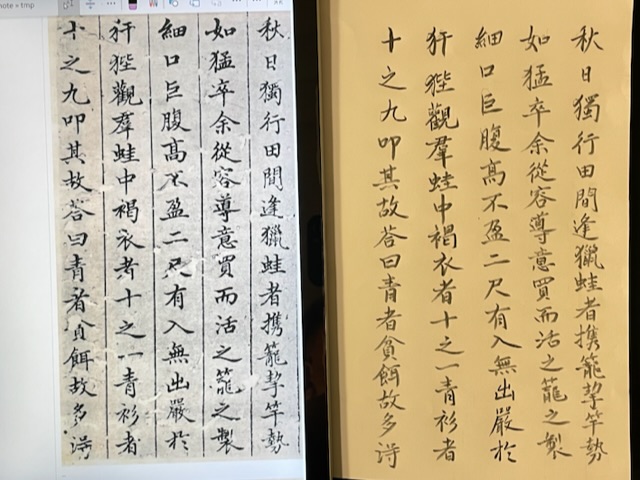 note × tmp
秋日獨行田間逢獵蛙者携籠挈竿勢
如猛卒余從容尊意買而活之籠之製
細口巨腹高不盈二尺有入無出嚴於
犴狴觀羣蛙中褐衣者十之一青衫者
十之九叩其故答曰青者貪餌故多得
秋日獨行田間逢獵蛙者携籠挈竿勢
如猛卒余從容尊意買而活之籠之製
細口巨腹高不盈二尺有入無出嚴於
犴狴觀羣蛙中褐衣者十之一青衫者
十之九叩其故答曰青者貪餌故多得